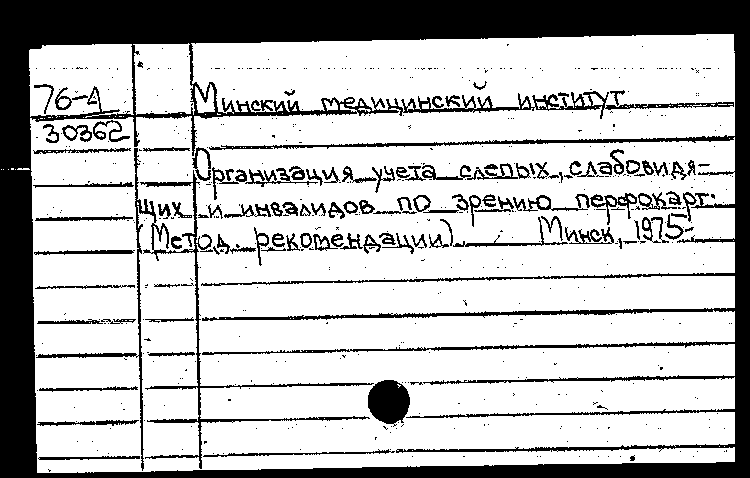 76-4 Минский медицинский институт
30362
Организация учета слепых, слабовидя-
щих и инвалидов по зрению перфокарт.
(Метод. рекомендации). Минск, 1975.